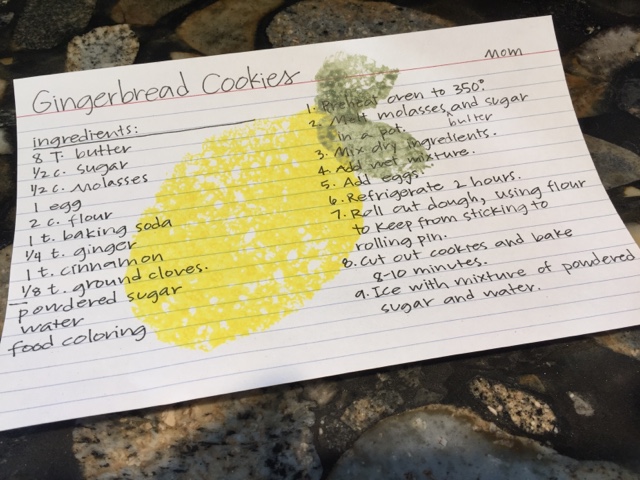 Gingerbread Cookies
Mom
ingredients:
8 T. butter
1/2 c. sugar
1/2 c. Molasses
1 egg
2 c. flour
1 t. baking soda
1/4 t. ginger
1 t. cinnamon
1/8 t. ground cloves.
powdered sugar
water
food coloring
1. Preheat oven to 350°.
2. Melt molasses, and sugar
butter
in a pot.
3. Mix dry ingredients.
4. Add wet mixture.
5. Add eggs.
6. Refrigerate 2 hours.
7. Roll out dough, using flour
to keep from sticking to
rolling pin.
8. Cut out cookies and bake
8-10 minutes.
9. Ice with mixture of powdered
sugar and water.